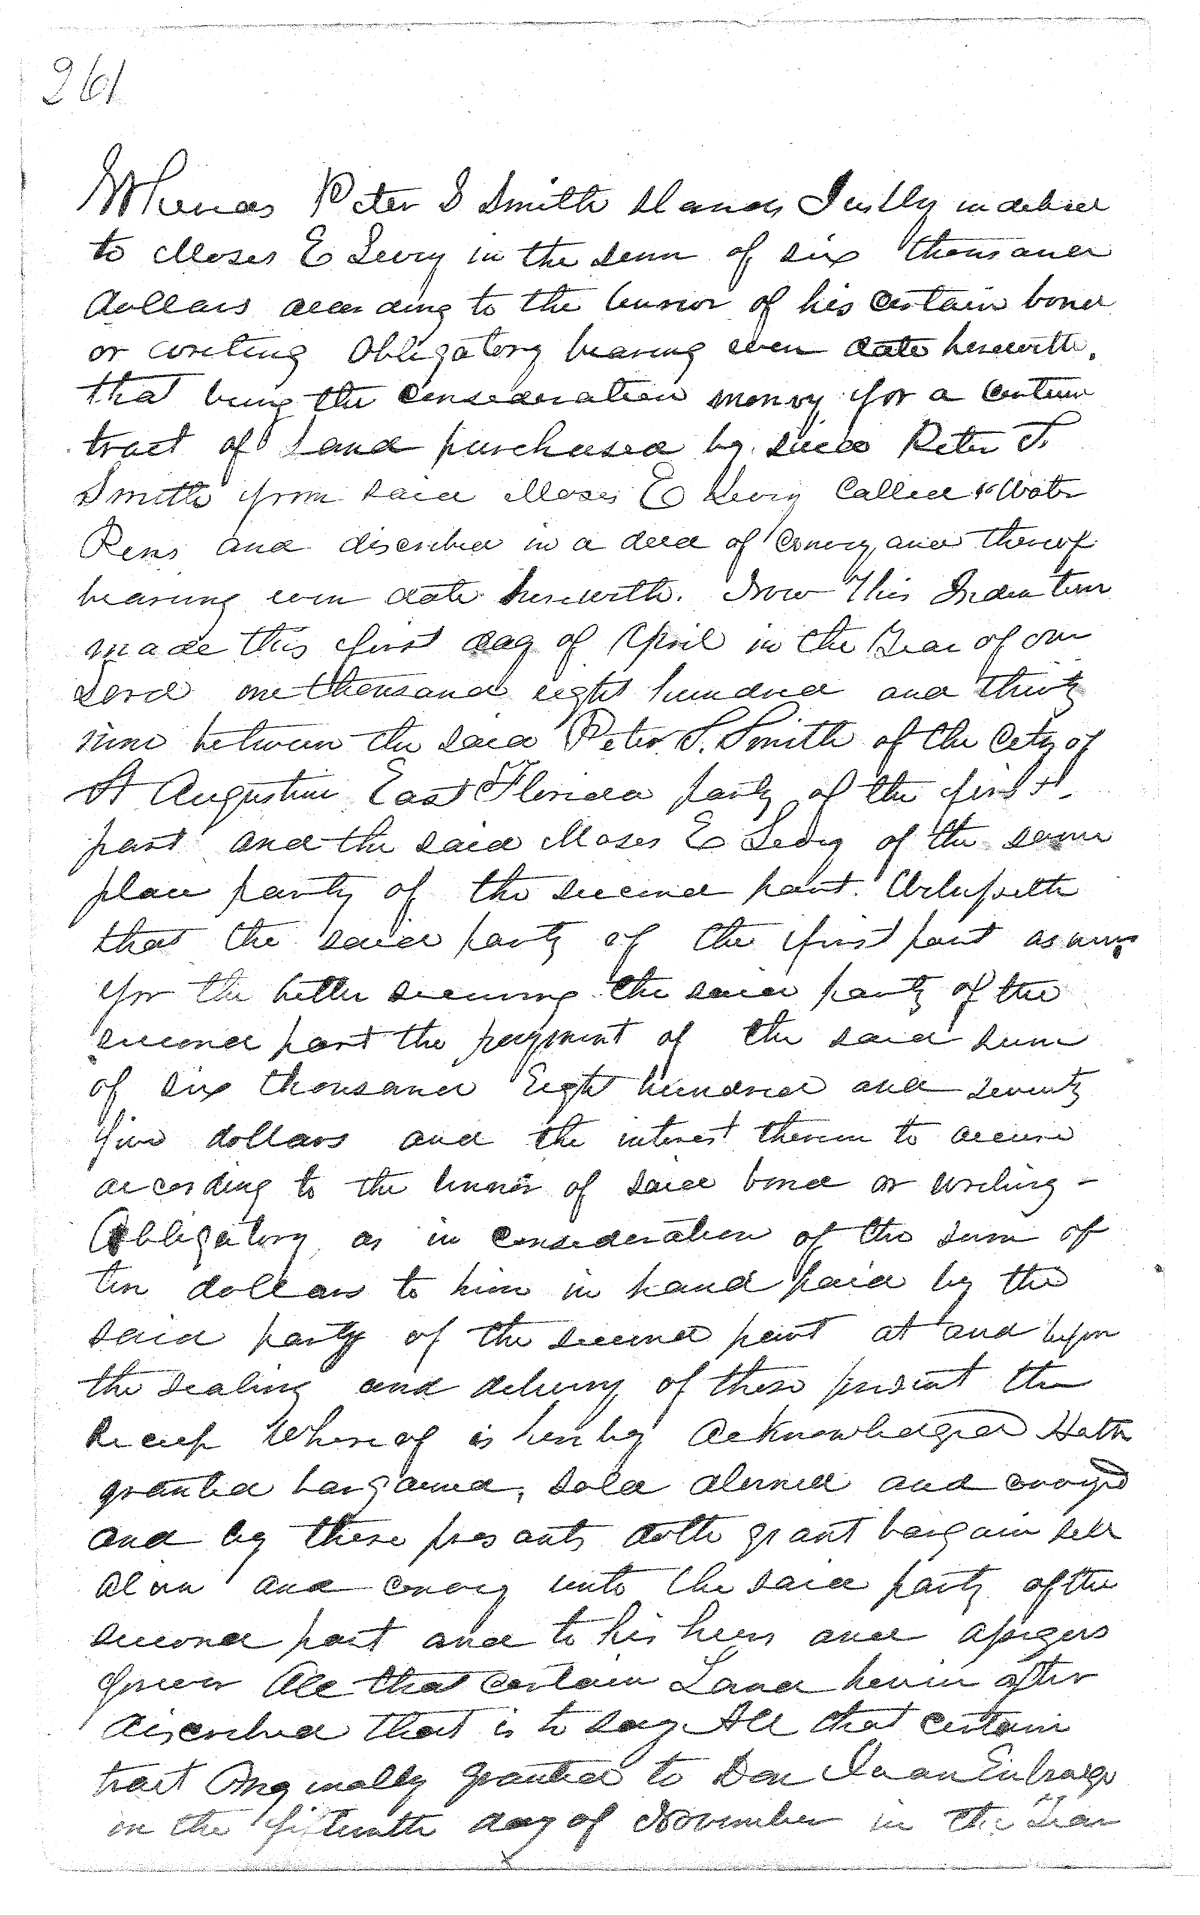 261
Whereas Peter S Smith stands Justly indebted
to Moses E Levy in the sum of six thousand
dollars according to the tenor of his certain bond
or writing Obligatory bearing even date herewith,
that being the consideration money for a certain
tract of Land purchased by said Peter S.
Smith from said Moses E Levy Called
and discribed in a deed of conveyance thereof
bearing even date herewith. Now This Indenture
made this first day of April in the Year of our
Lord one thousand eight hundred and thirty
nine between the said Peter S. Smith of the City of
St Augustine East Florida party of the first
part and the said Moses E Levy of the same
place party of the second part. Witnesseth
that the said party of the first part as well
for the better securing the said party of the
second part the payment of the said sum
of six thousand Eight hundred and seventy
five dollars and the interest thereon to accrue
according to the tennor of said bond or writing -
Obligatory as in consideration of the sum of
ten dollars to him in hand paid by the
said party of the second part at and upon
the sealing and delivery of these present the
Receip Whereof is hereby acknowledged Hath
granted bargained, sold aliened and
and by these presants doth grant bargain sell
alien and convey unto the said party of the
second part and to his heirs and assigns
forever All that certain Land herein after
discribed that is to say All that certain
tract Originally granted to Don Juan
on the fifteenth day of November in the Year